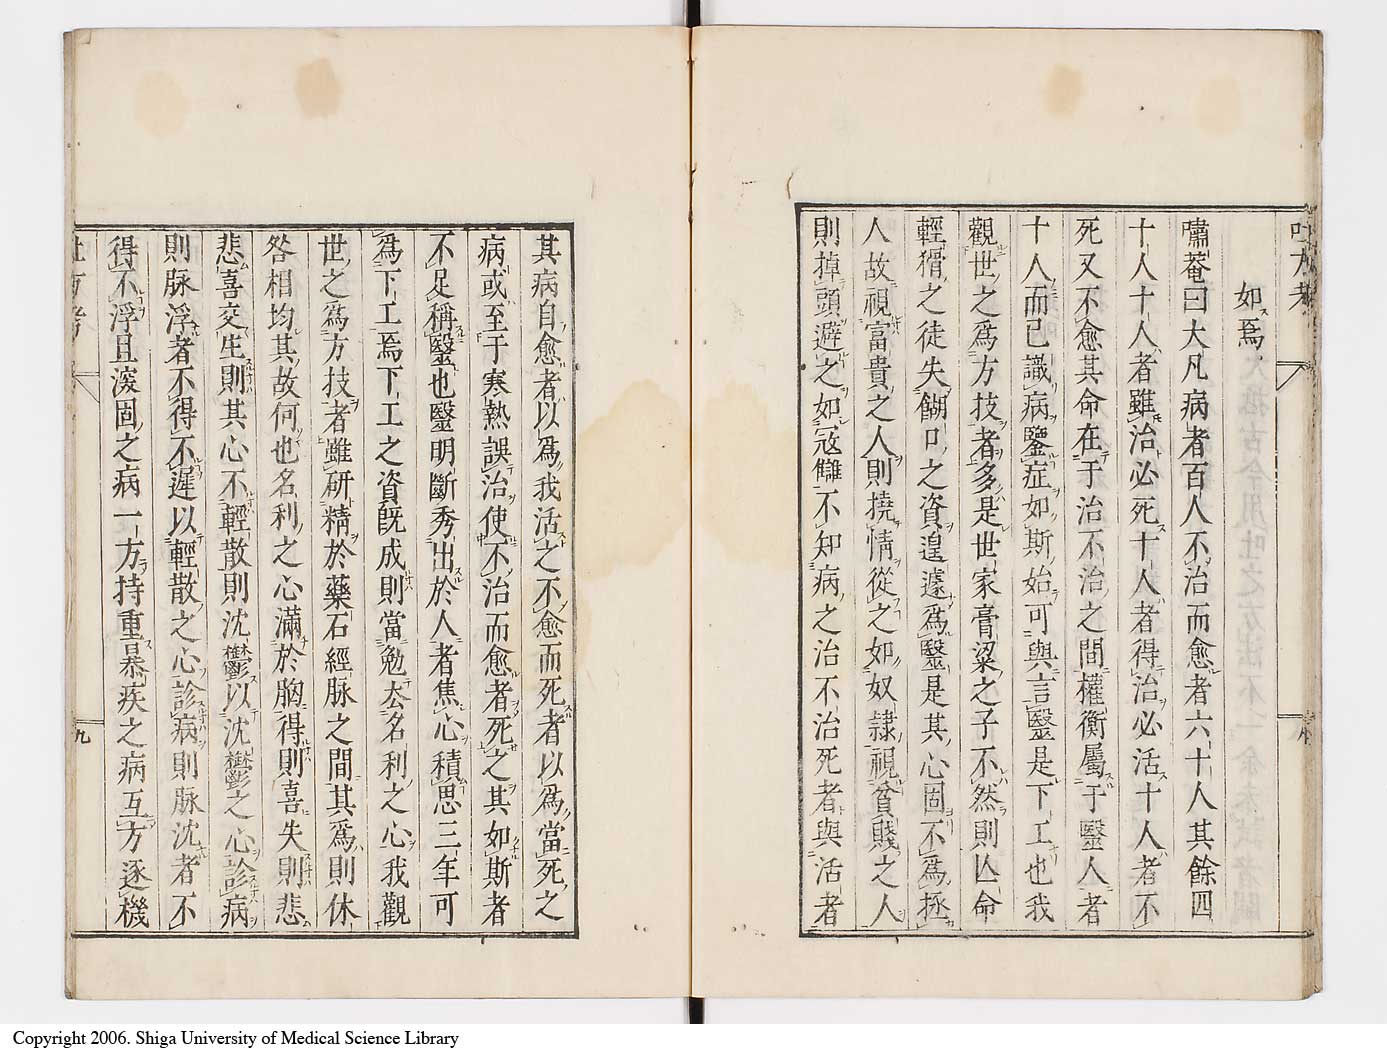 吐方考
如焉
嘯菴曰大凡病者百人不治而愈者六十人其餘四
十人十人者雖治必死十人者得治必活十人者不
死又不愈其命在于治不治之間權衡屬于醫人者
十人而已識病鑒症如斯始可與言醫是下工也我
觀世之爲方技者多是世家膏粱之子不然則亾命
輕猾之徒失餬口之資遑遽爲醫是其心固不爲拯
人故視富貴之人則撓情從之如奴隷視貧賤之人
則掉頭避之如寇讎不知病之治不治死者與活者
其病自愈者以爲我活之不愈而死者以爲當死之
病或至于寒熱誤治使不治而愈者死之其如斯者
不足稱醫也醫明斷秀出於人者焦心積思三年可
爲下工焉下工之資旣成則當勉厺名利之心我觀
世之爲方技者雖研精於藥石經脉之間其爲則休
咎相均其故何也名利之心滿於胸得則喜失則悲
悲喜交生則其心不輕散則沈鬱以沈鬱之心診病
則脉浮者不得不遲以輕散之心診病則脉沈者不
得不浮且深固之病一方持重暴疾之病互方逐機
吐方考
九
Copyright 2006. Shiga University of Medical Science Library